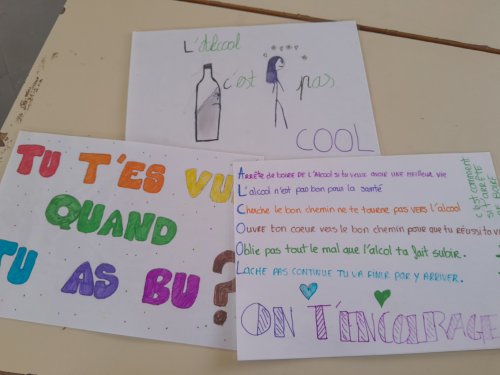 L'Alcool
c'est pas
COOL
TU T'ES VU
QUAND
TU AS BU ?
ARRÊTE de boire DE L'Alcool si tu veux avoir une meilleur vie
L'alcool n'est pas bon pour la santé
Cherche le bon chemin ne te tourne pas vers l'alcool
Ouvre ton coeur vers le bon chemin pour que tu réussi ta vi
Oblie pas tout le mal que l'alcol ta fait subir.
LACHE PAS CONTINUE TU VA FINIR PAR Y ARRIVER.
ON T'ENCOURAGE
comment